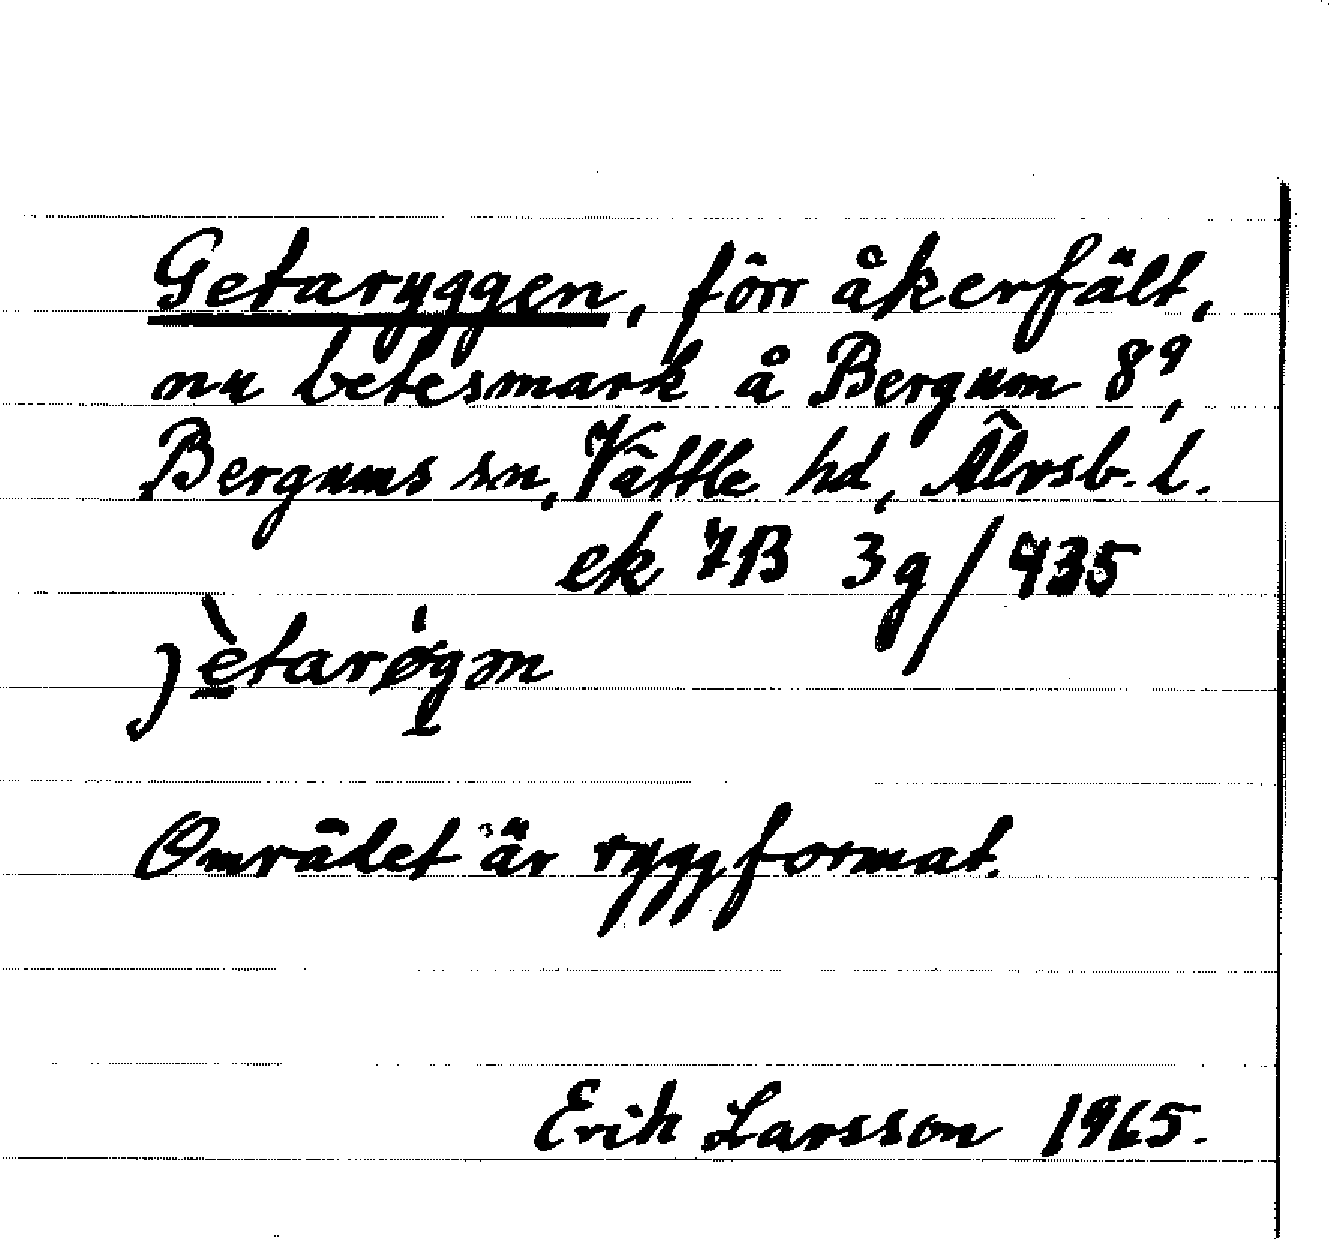 Getaryggen, förr åkerfält,
nu betesmark å Bergum 8⁹,
Bergums sn, Vättle hd, Älvsb. l.
ek 7B 3g/435
j̀etarøgən
Området är ryggformat.
Erik Larsson 1965.